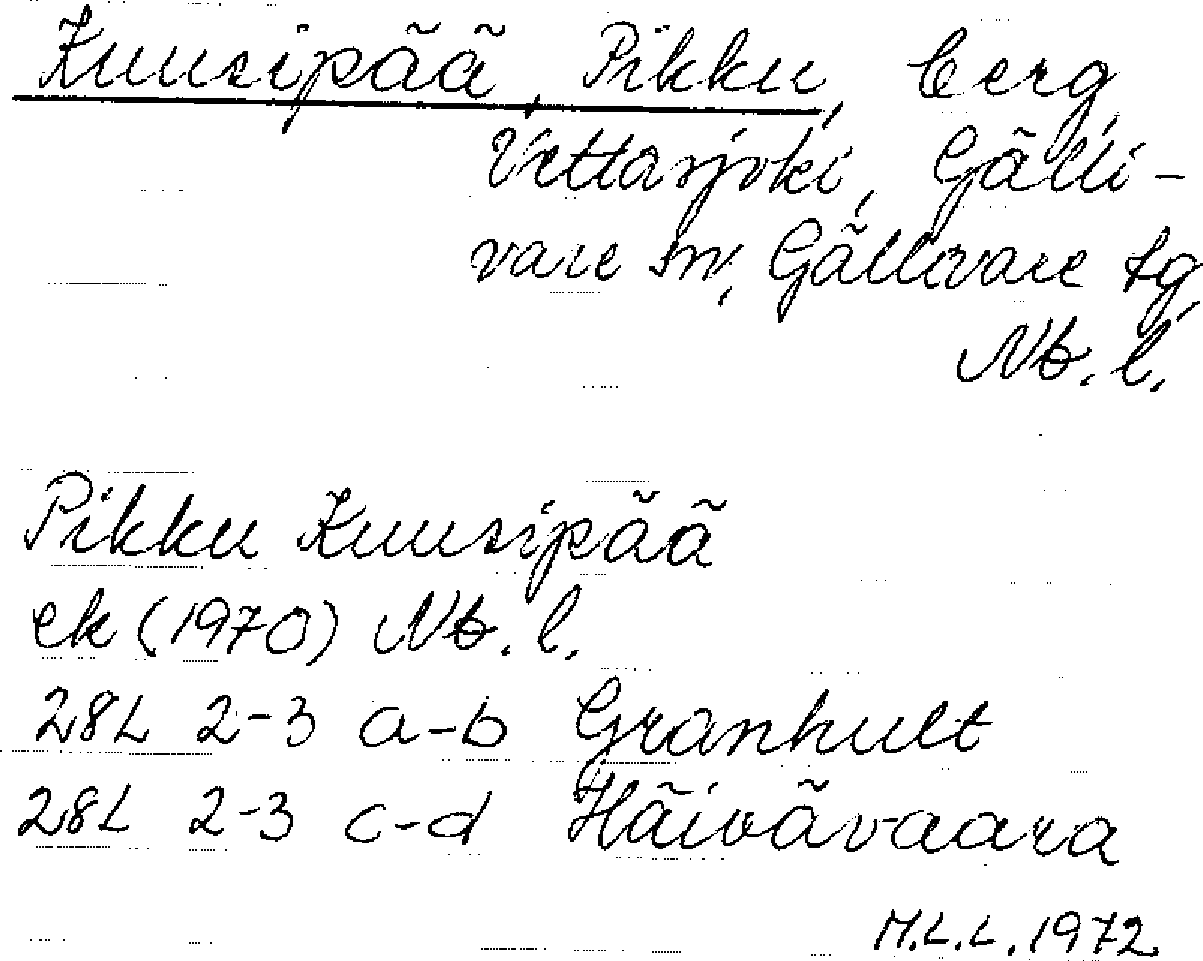 Kuusipää, Pikku, berg,
Vettasjoki, Gälli-
vare sn, Gällivare tg,
Nb. l.
Pikku Kuusipää
ek (1970) Nb. l.
28L 2-3 a-b Granhult
28L 2-3 c-d Häivävaara
M.L.L. 1972